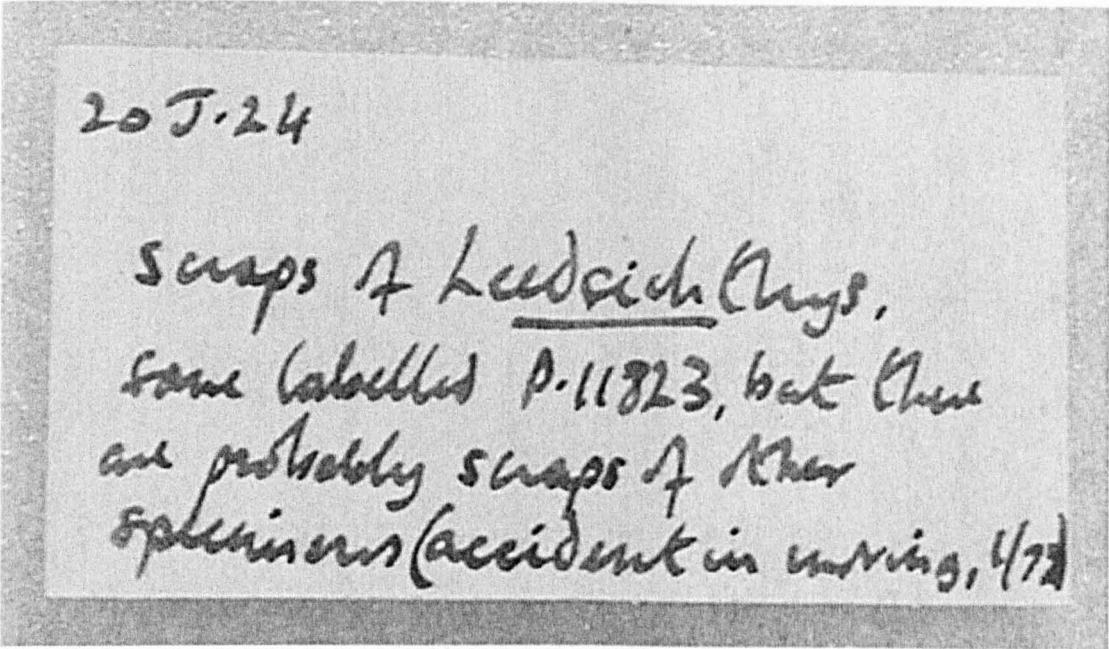 20 J.24
Scraps of Leedsichthys,
some labelled P.11823, but there
are probably scraps of other
specimens (accident in moving, 1/72)